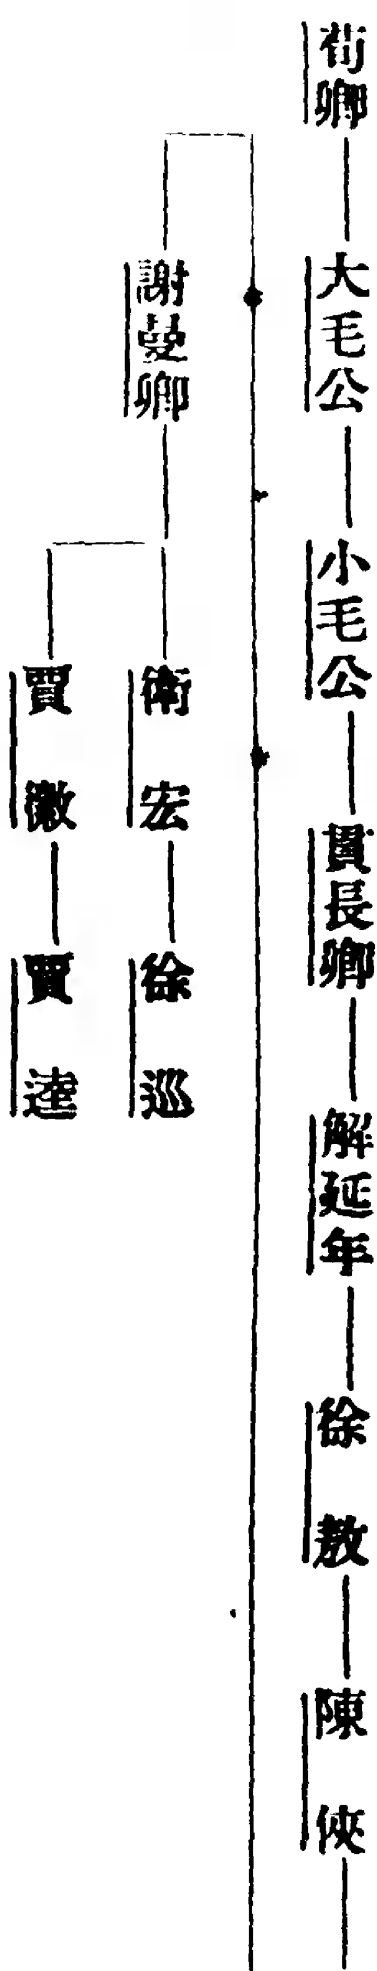 荀卿
大毛公
小毛公
貫長卿
解延年
徐敖
陳俠
謝曼卿
衛宏
徐巡
賈徽
賈逵